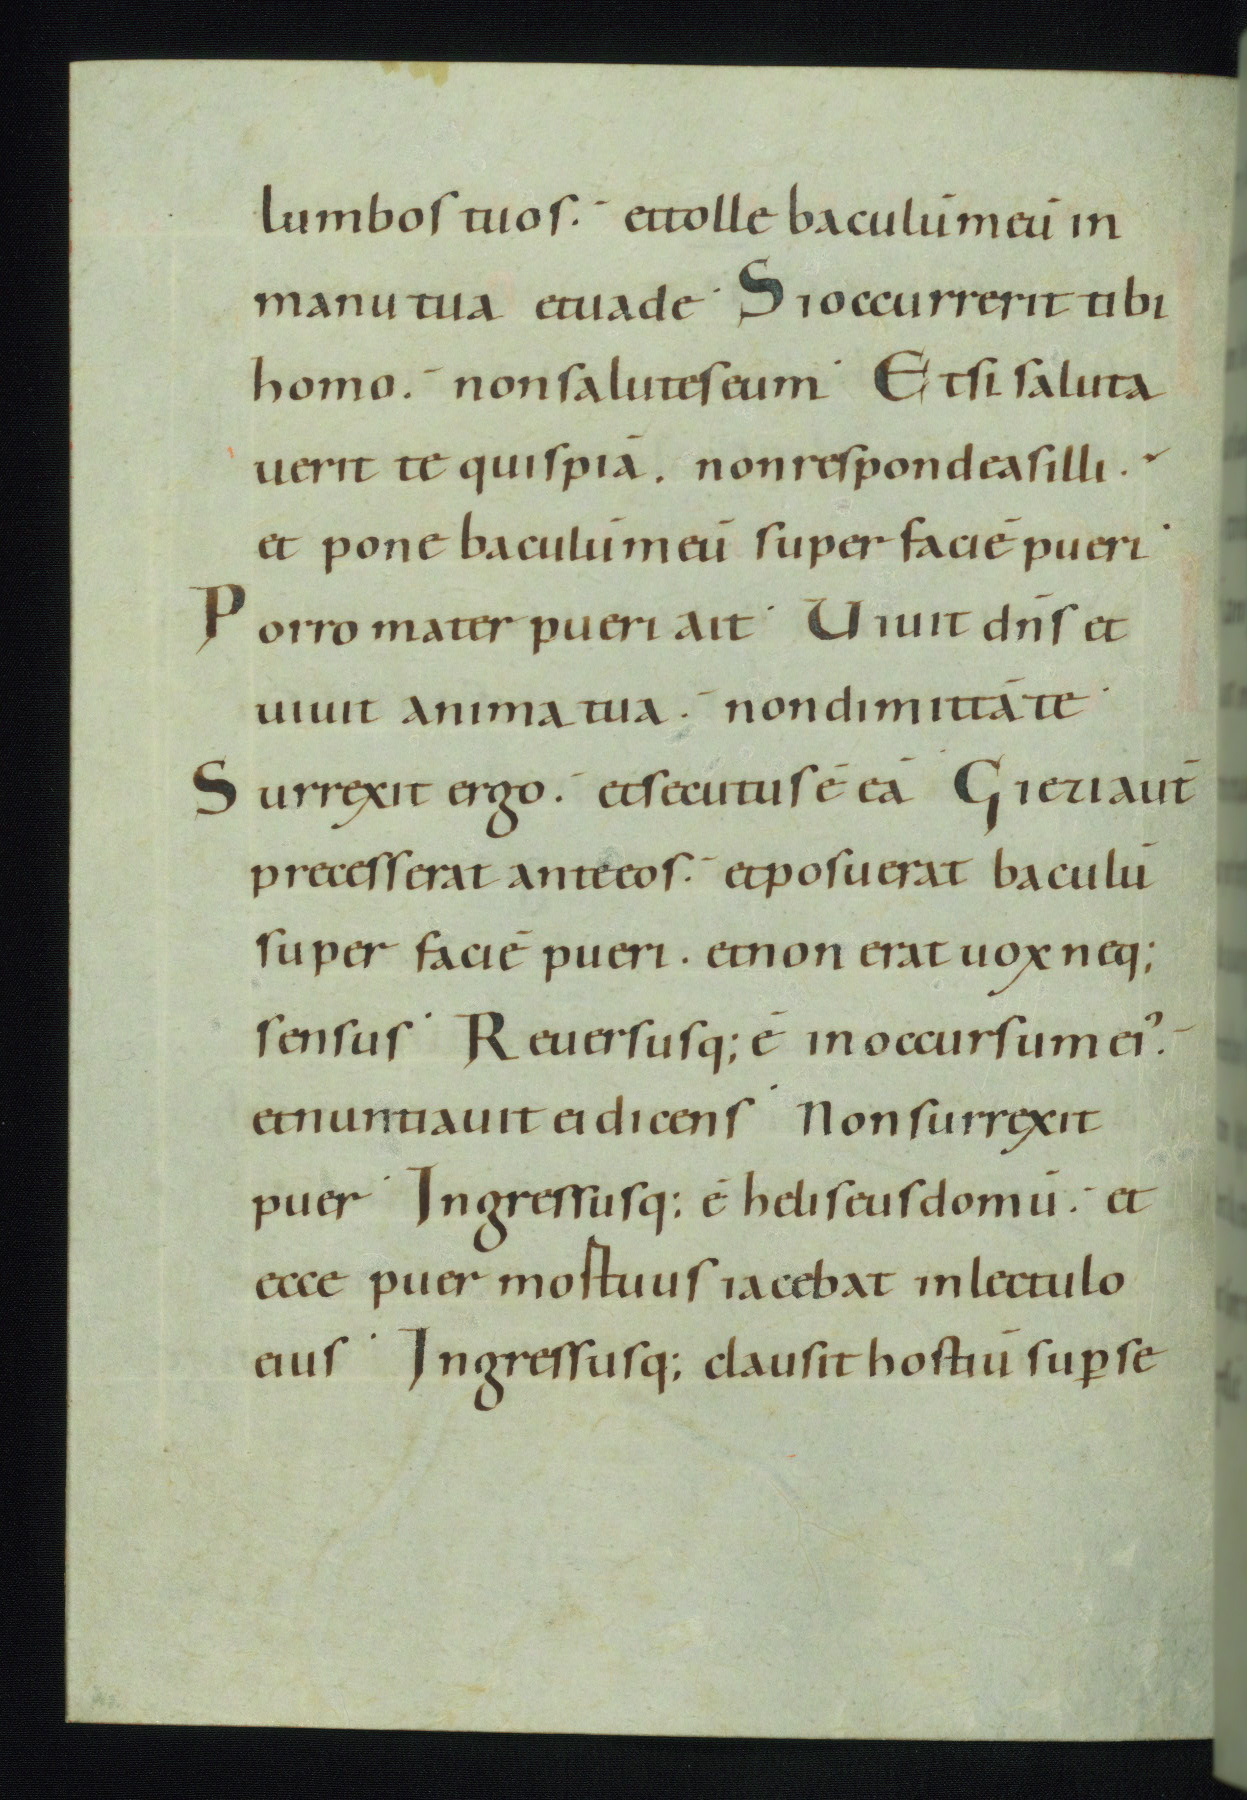 lumbos tuos. et tolle baculū meū in
manu tua et uade. Si occurrerit tibi
homo. non salutes eum. Et si saluta
uerit te quispiā. non respondeas illi.
et pone baculū meū super faciē pueri.
Porro mater pueri ait. Uiuit dn̄s et
uiuit anima tua. non dimittā te.
Surrexit ergo. et secutus ē eā. Giezi aut̄
precesserat ante eos. et posuerat baculū
super faciē pueri. et non erat uox neq;
sensus. Reuersusq; ē in occursum eiꝰ.
et nuntiauit ei dicens. Non surrexit
puer. Ingressusq; ē heliseus domū. et
ecce puer mortuus iacebat in lectulo
eius. Ingressusq; clausit hostiū suꝑ se